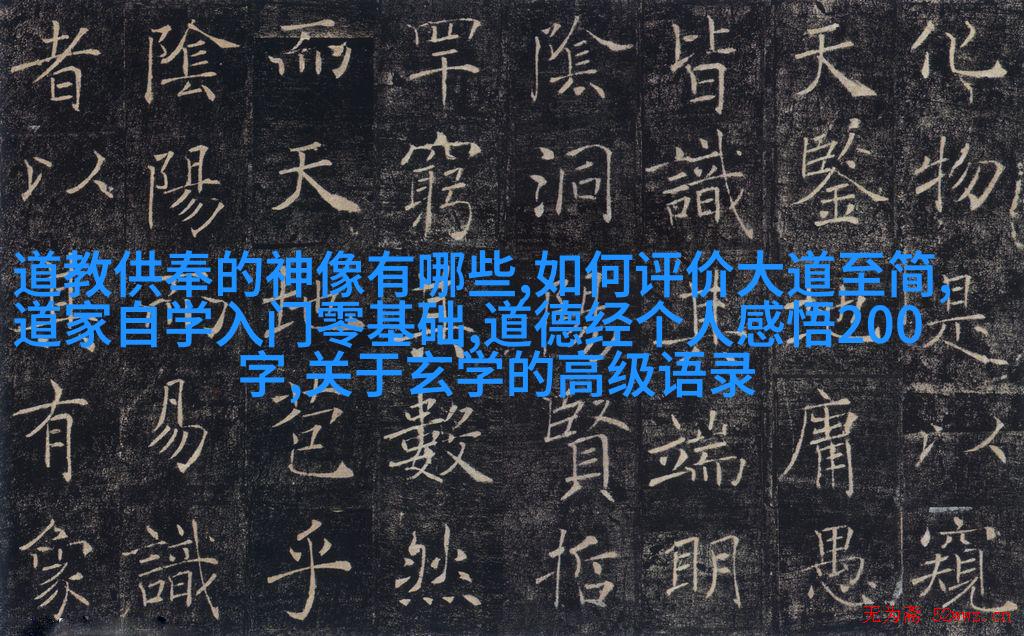 化物是以窺
天鑒地庸愚
皆識其端明
陰洞陽賢哲
罕窮其數然
而天地苞乎
陰陽而易識
者以其有象
道教供奉的神像有哪些,如何评价大道至简,
道家自学入门零基础,道德经个人感悟200
字,关于玄学的高级语录
无为斋 52wwz.cn